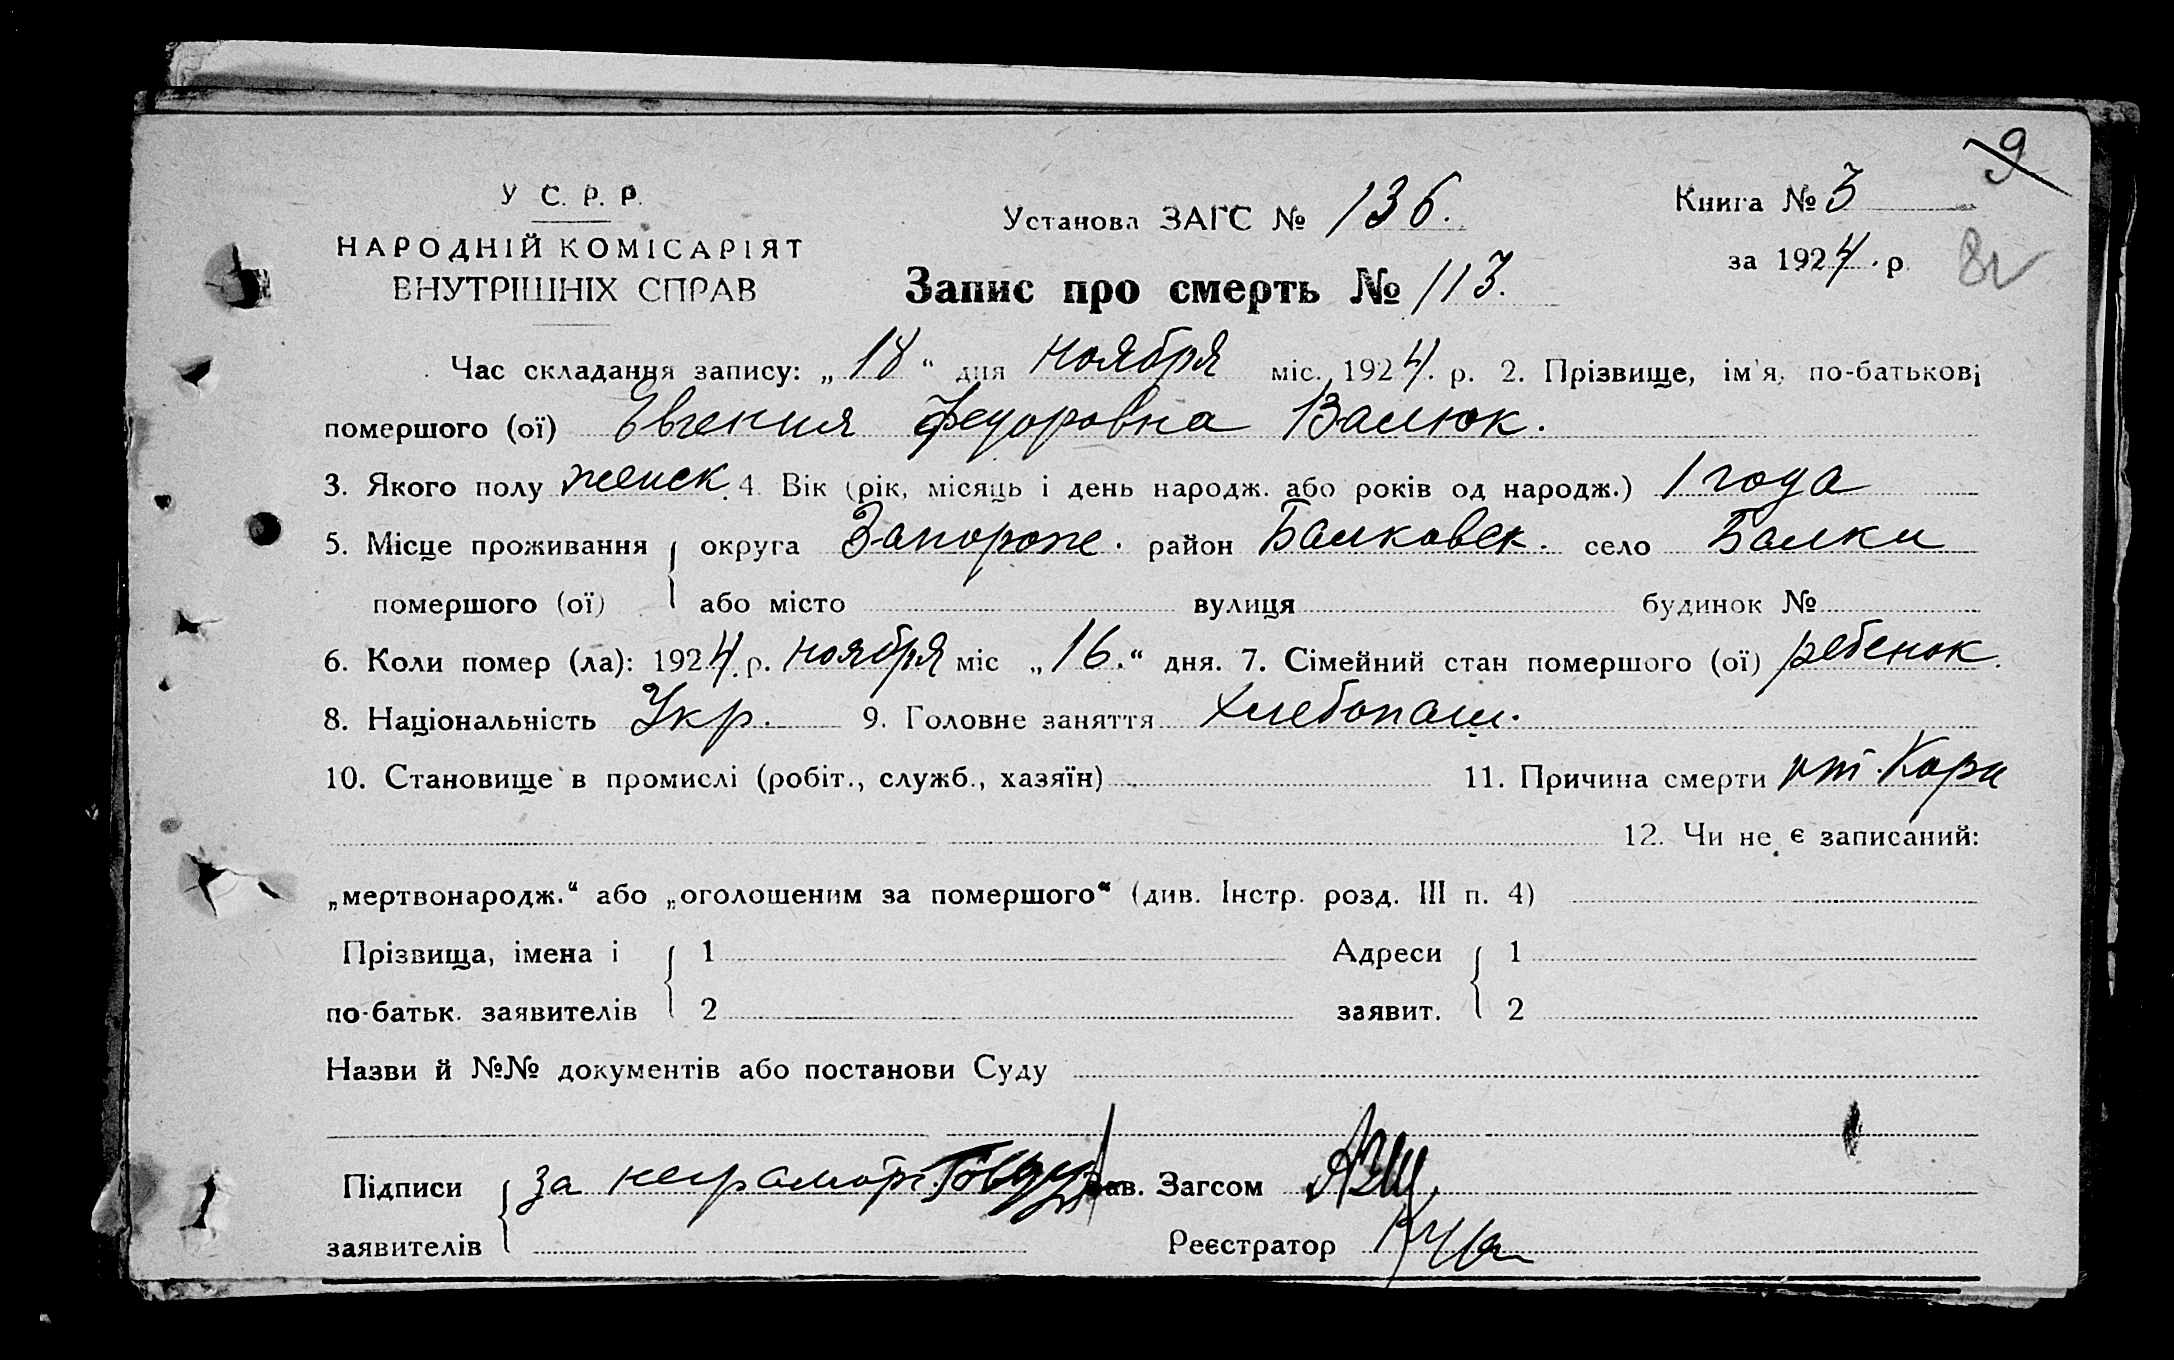 9
У С. Р. Р.
НАРОДНІЙ КОМІСАРІЯТ
ВНУТРІШНІХ СПРАВ
Установа ЗАГС № 136.
Запис про смерть № 113.
Книга № 3
за 1924 р.
Час складання запису: „18“ дня ноября міс. 1924 р. 2. Прізвище, ім'я, по-батькові
помершого (ої) Евгения Федоровна Валюк.
3. Якого полу женск. 4. Вік (рік, місяць і день народж. або років од народж.) 1 года
5. Місце проживання округа Запорож. район Балковск. село Балки
помершого (ої) або місто вулиця будинок №
6. Коли помер (ла): 1924 р. ноября міс „16.“ дня. 7. Сімейний стан помершого (ої) ребенок.
8. Національність Укр. 9. Головне заняття Хлебопаш.
10. Становище в промислі (робіт., служб., хазяїн) 11. Причина смерти от Кори
12. Чи не є записаний:
„мертвонародж.“ або „оголошеним за помершого“ (див. Інстр. розд. III п. 4)
Прізвища, імена і 1 Адреси 1
по-батьк. заявителів 2 заявит. 2
Назви й №№ документів або постанови Суду
Підписи за неграмотн. Зав. Загсом
заявителів Реєстратор